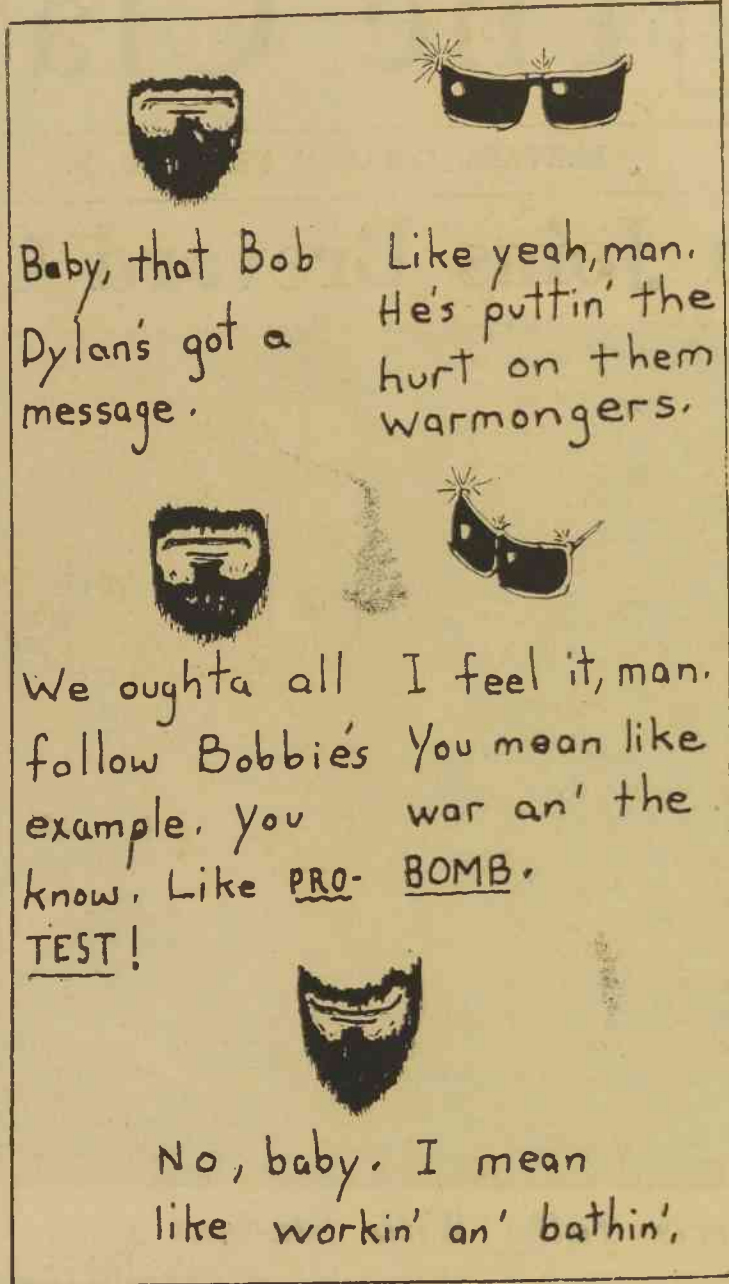 Baby, that Bob
Dylan's got a
message.
Like yeah, man.
He's puttin' the
hurt on them
warmongers.
We oughta all
follow Bobbie's
example. You
know. Like PRO-
TEST!
I feel it, man.
You mean like
war an' the
BOMB.
No, baby. I mean
like workin' an' bathin'.